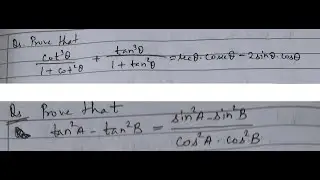 Q. Prove that
cot³θ / 1 + cot²θ + tan³θ / 1 + tan²θ = secθ · cosecθ - 2sinθ · cosθ
Q. Prove that
tan²A - tan²B = sin²A - sin²B / cos²A · cos²B